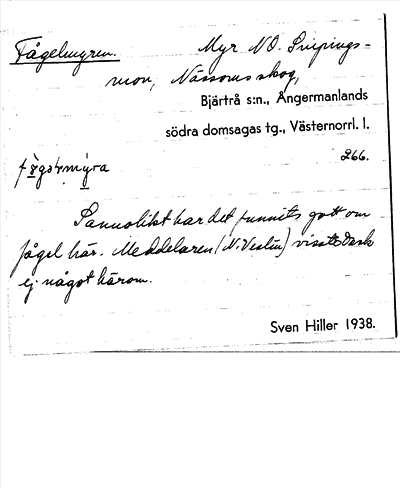 Fågelmyren. Myr NO. Snipings-
mon, Nässoms skog,
Bjärtrå s:n., Ångermanlands
södra domsagas tg., Västernorrl. l.
266.
Sannolikt har det funnits gott om
fågel här. Meddelaren (N. Veslin) visste dock
ej något härom.
Sven Hiller 1938.